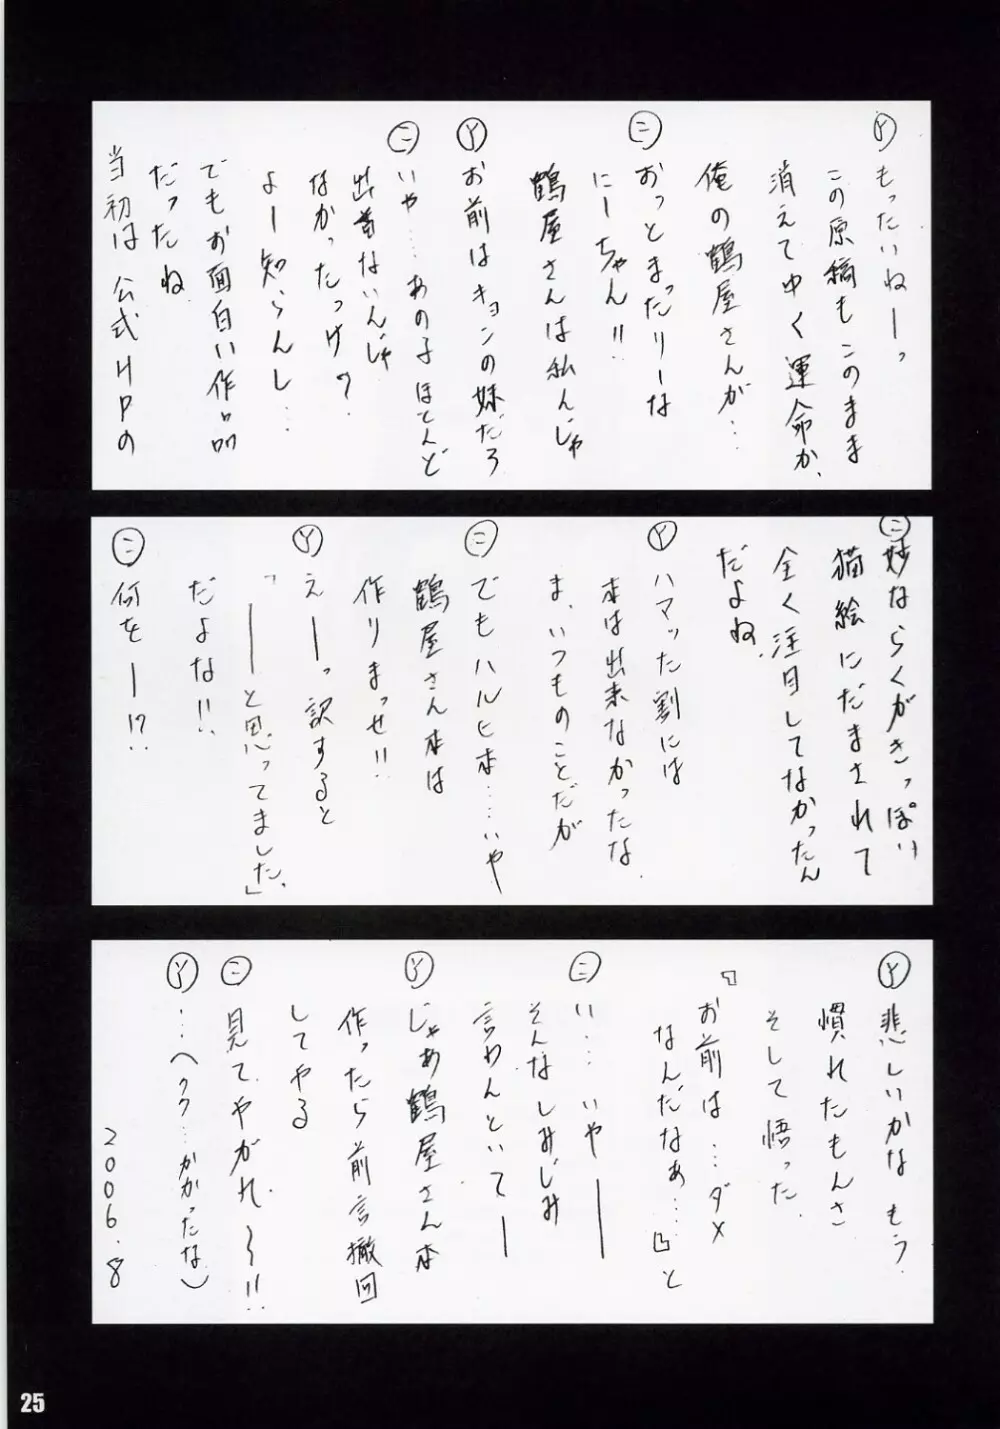 ド もったいねーっ
この原稿もこのまま
消えてゆく運命か、
俺の鶴屋さんが…
ニ おっとまったりーな
にーちゃん!!
鶴屋さんは私んじゃ
ド お前はキョンの妹だろ
ニ いや……あの子ほとんど
出番ないんじゃ
なかったっけ?
よー知らんし…
でもお面白い作品
だったね
当初は公式HPの
ニ 妙ならくがきっぽい
猫絵にだまされて
全く注目してなかったん
だよね、
ド ハマッた割には
本は出来なかったな
ま、いつものことだが
ニ でもハルヒ本……いや
鶴屋さん本は
作りまっせ!!
ド えーっ訳すると
「――と思ってました。」
だよな!!
ニ 何をー!?
ド 悲しいかな もう
慣れたもんさ
そして悟った
「お前は…ダメ
なんだなぁ…」と
ニ い…いや――
そんなしみじみ
言わんといてー
ド じゃあ鶴屋さん本
作ったら前言撤回
してやる
ニ 見てやがれ〜!!
ド (…ヘクク…かかったな)
2006.8
25